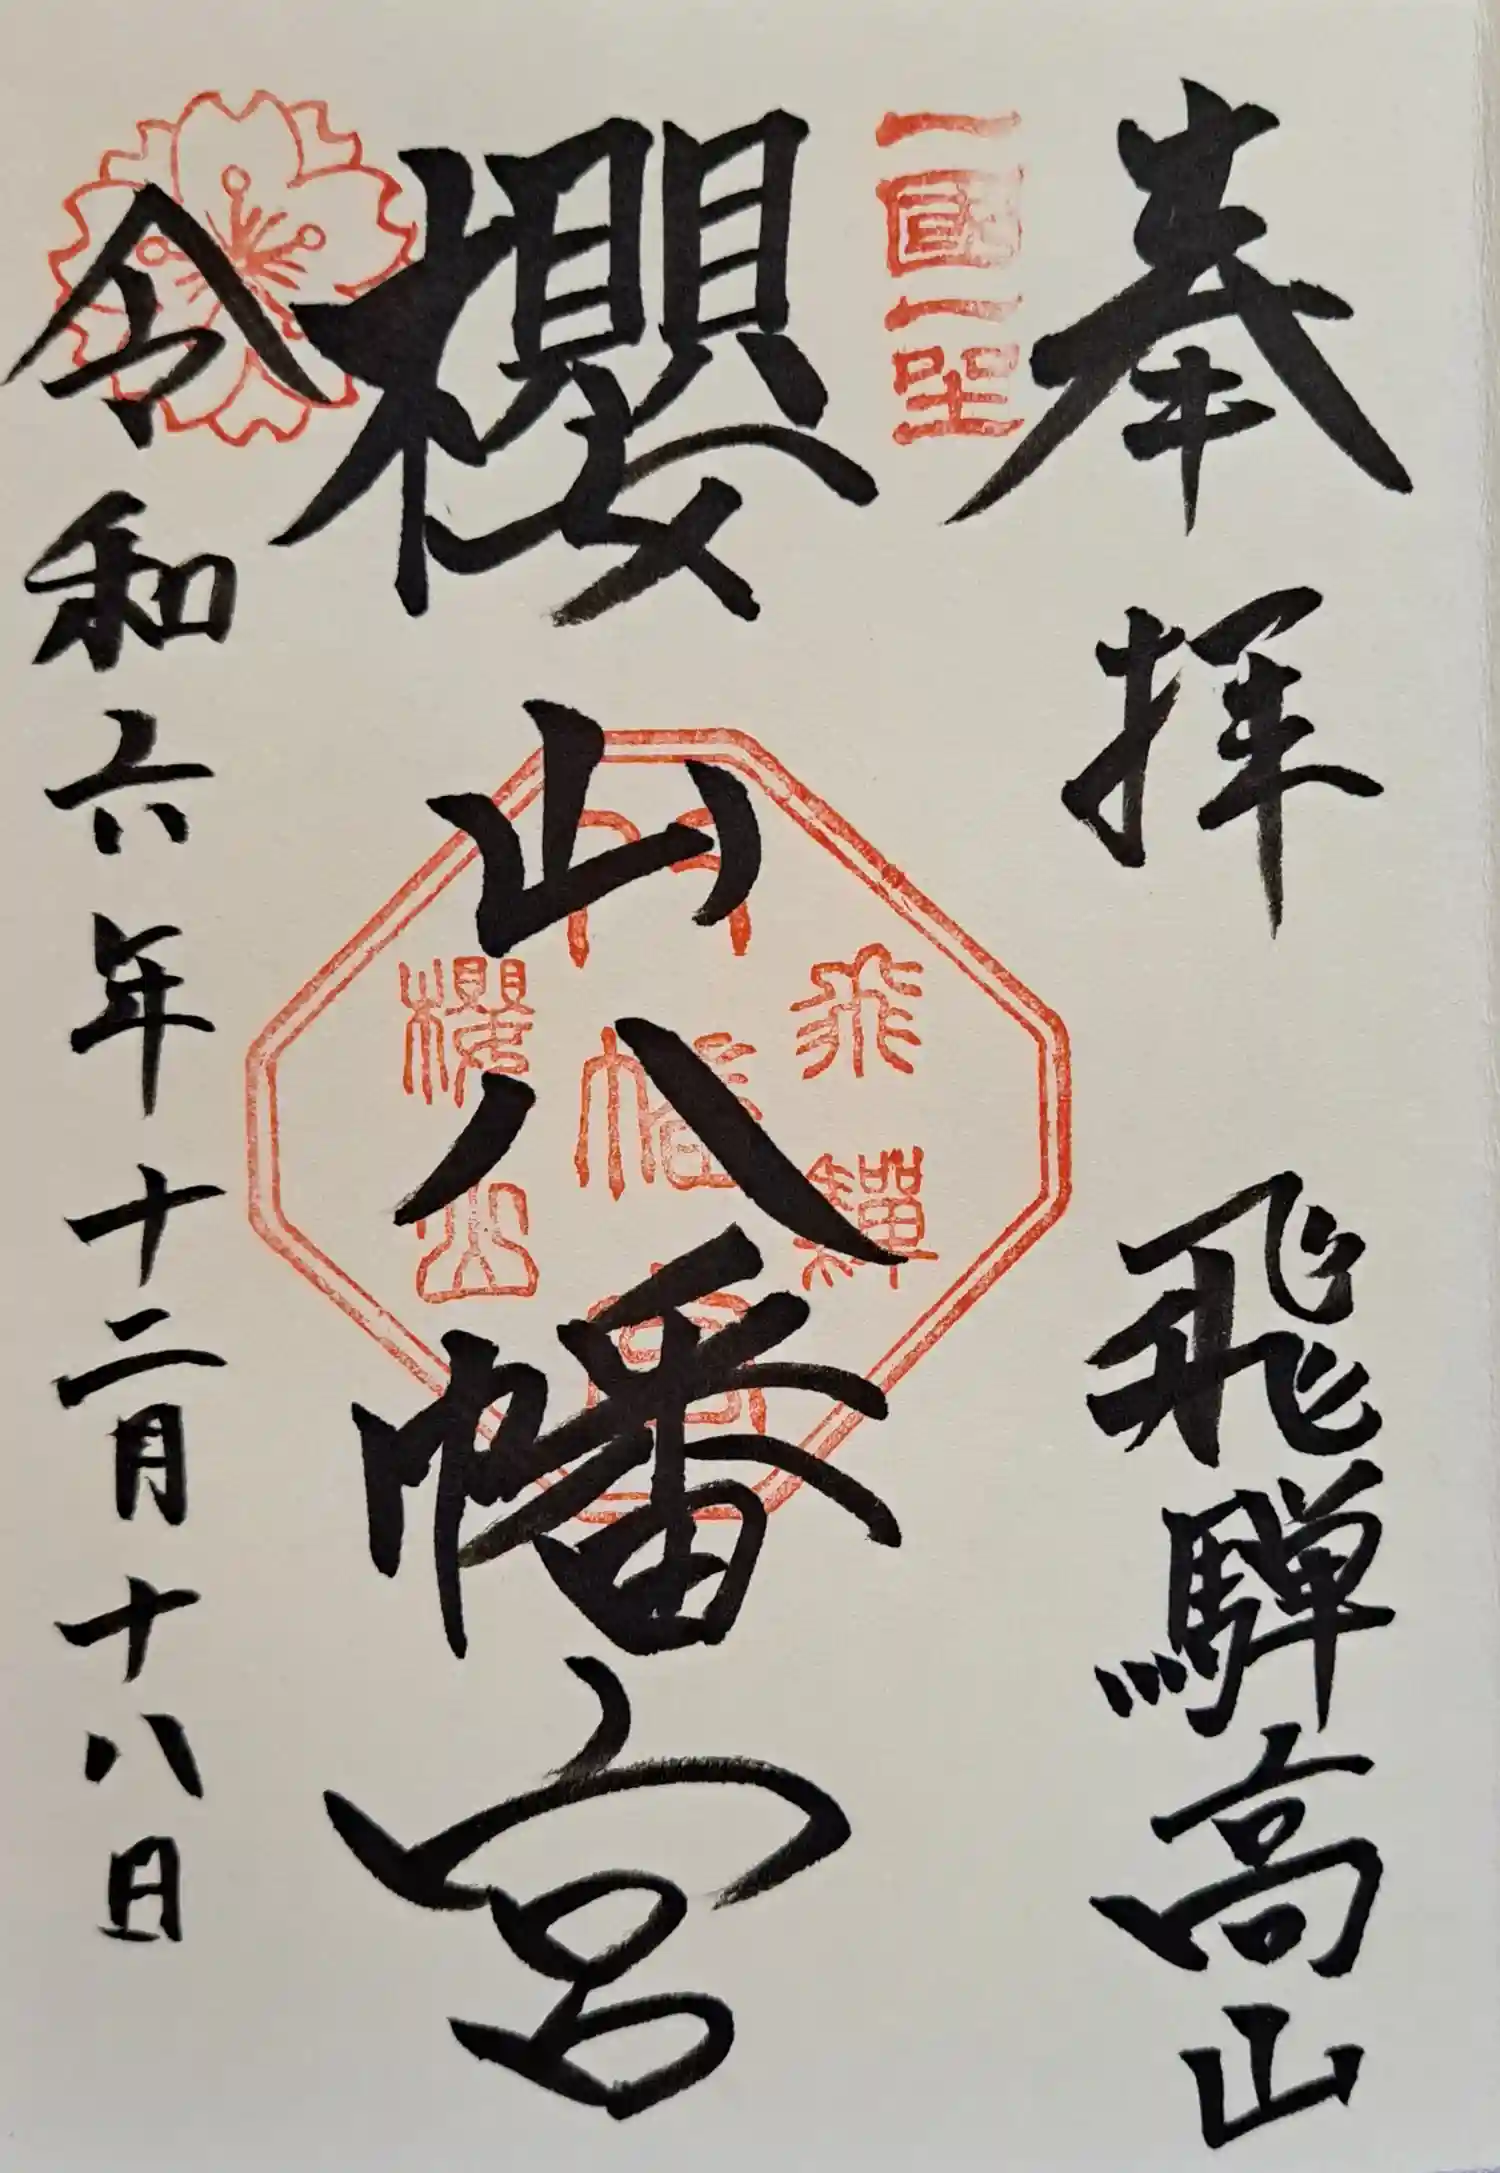 奉拝　飛騨高山
一國一社
櫻山八幡宮
飛驒
八幡宮
櫻山
令和六年十二月十八日